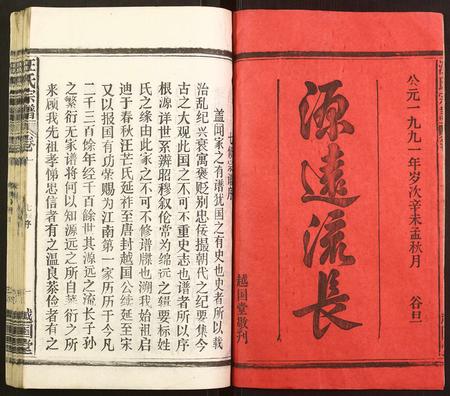 公元一九九一年岁次辛未孟秋月 谷旦
源远流长
越国堂敬刊
七修宗谱序
盖闻家之有谱犹国之有史也史者所以载
治乱纪兴衰寓褒贬别忠佞撮朝代之纪要集今
古之大观此国之不可不重史志也谱者所以序
根源详世系辨昭穆叙伦常为绵远之纽要标姓
氏之缘由此家之不可不修谱牒也溯我始祖启
迪于春秋汪芒氏延祚至唐封越国公续延至宋
又以报国有功荣赐为江南第一家历历于今凡
二千三百馀年经千百馀世其源远之流长子孙
之繁衍无家谱将何以知源远之所自蕃衍之所
来顾我先祖孝悌忠信者有之温良恭俭者有之
汪氏宗谱
越国堂